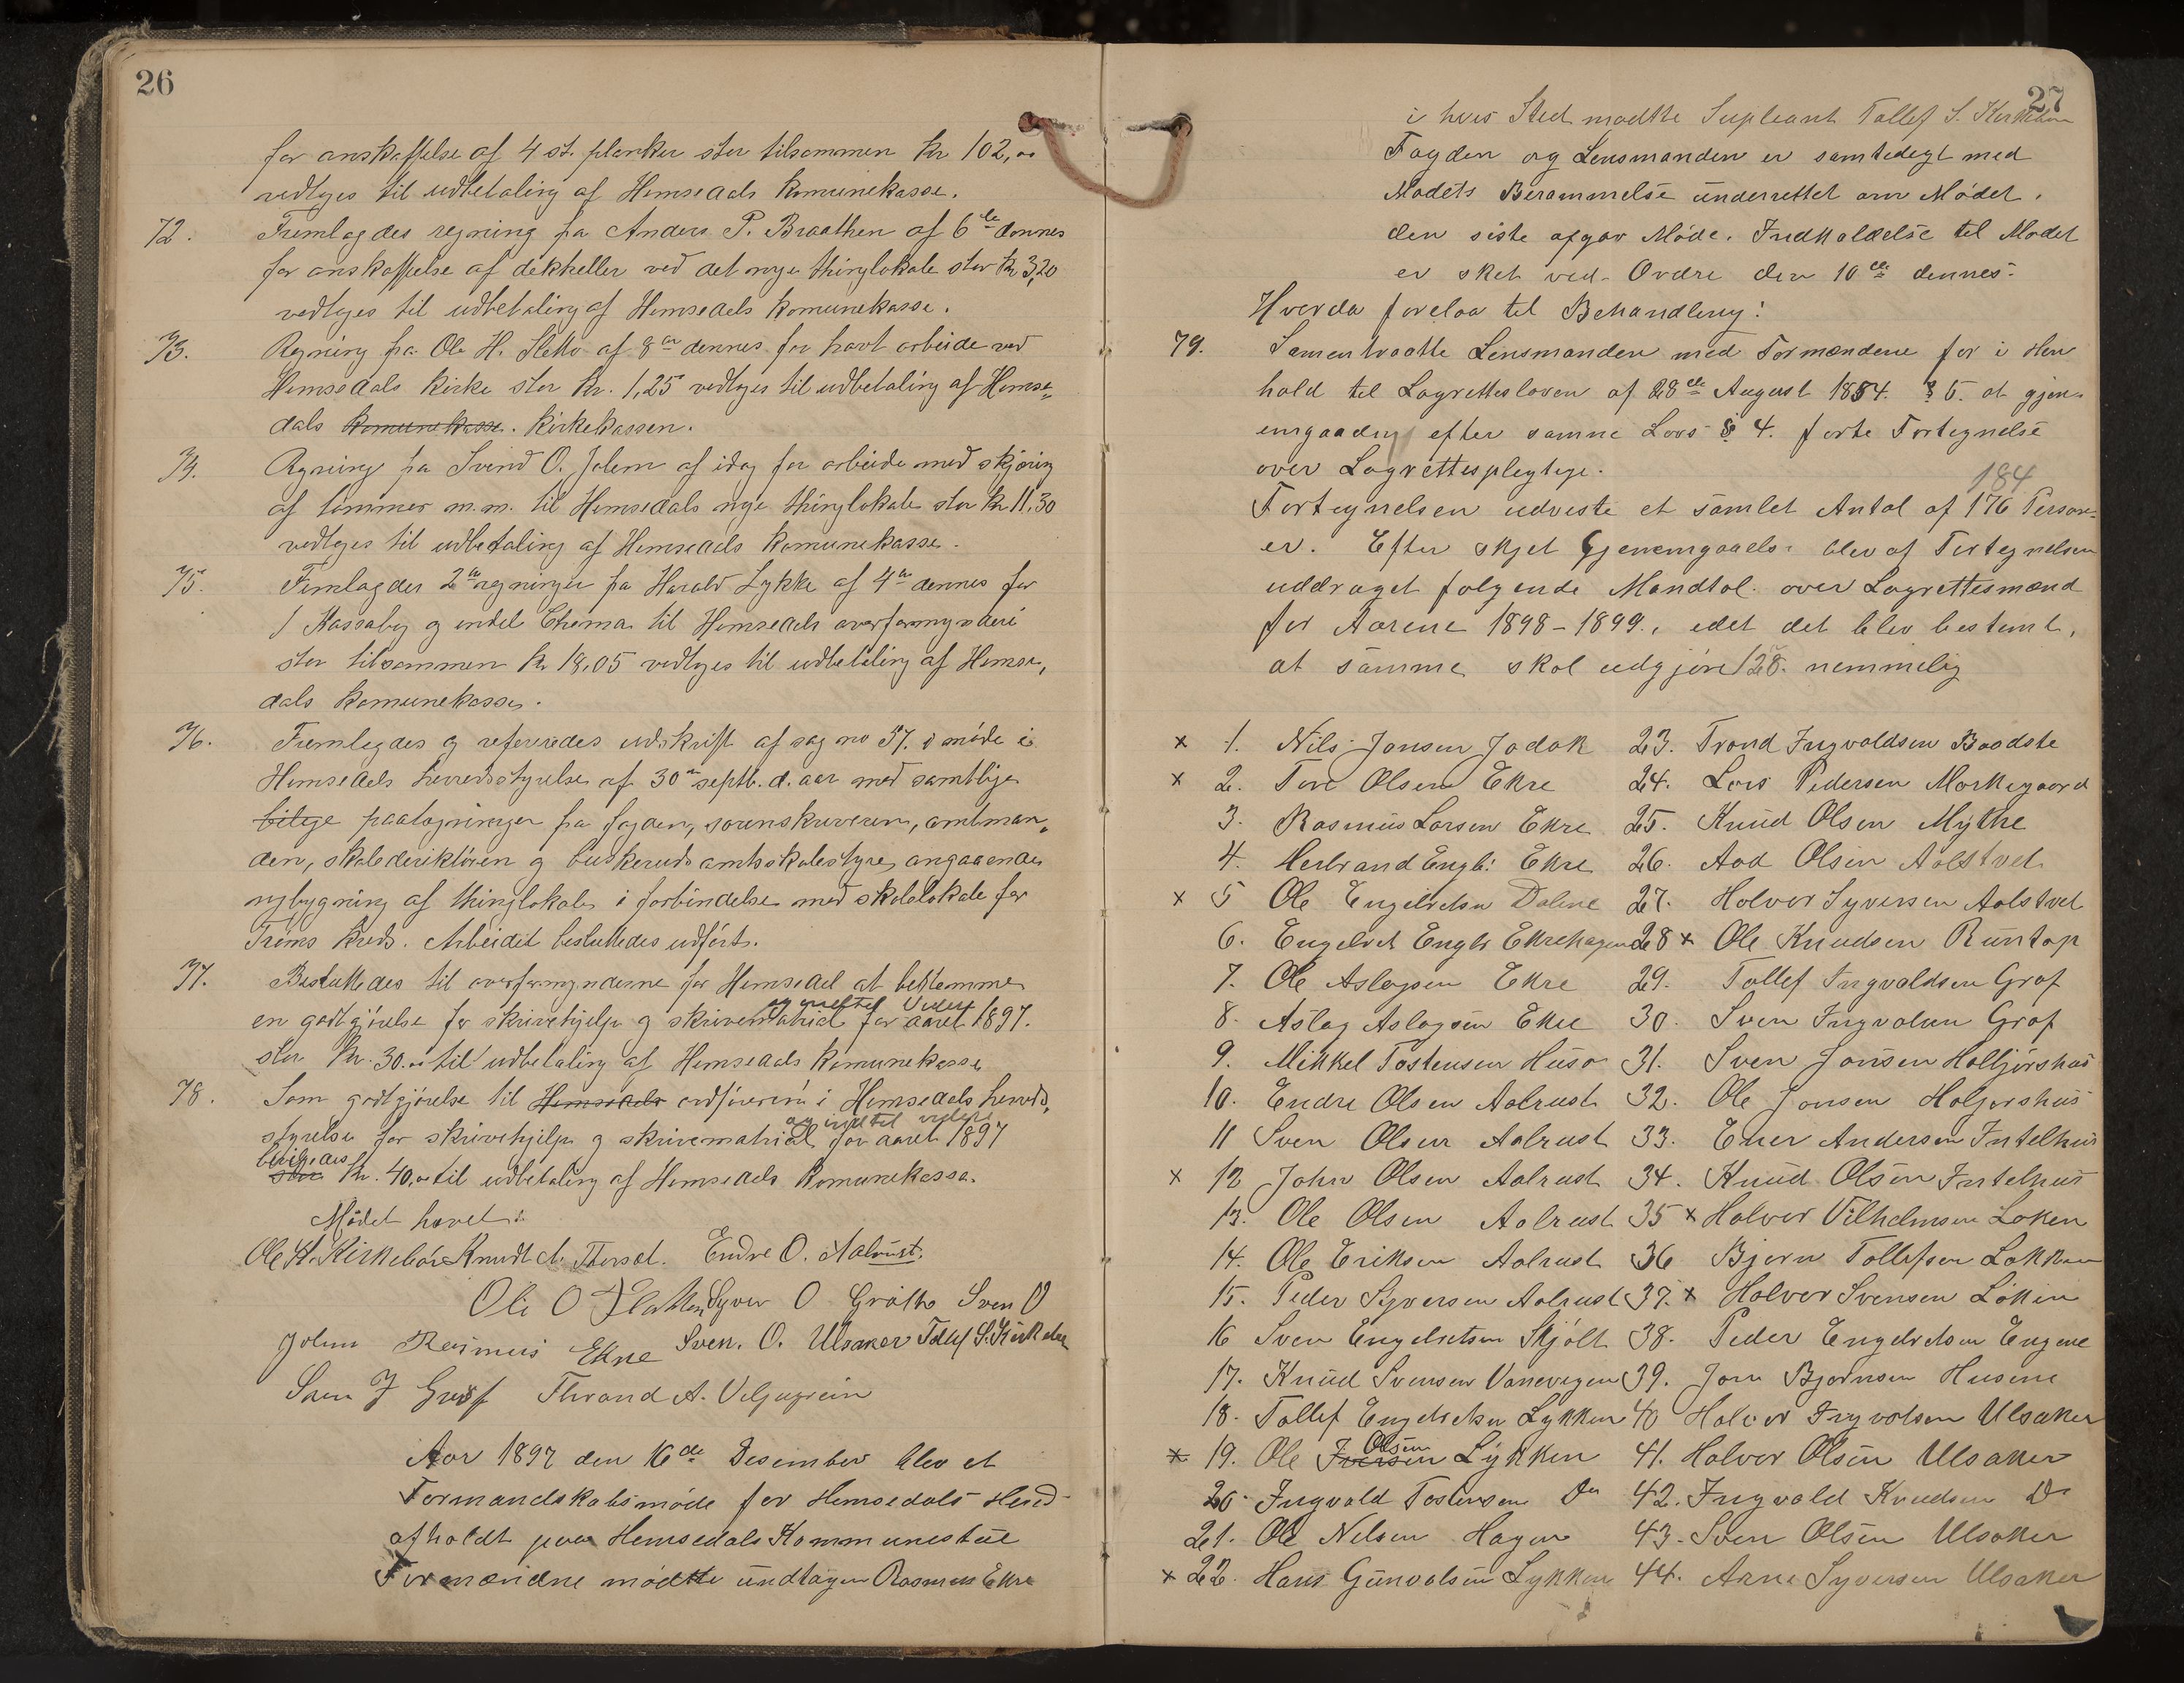 26
for anskaffelse af 4 st. planker stor tilsammen kr 102,00
vedtoges til udbetaling af Hemsedals komunekasse.
72. Fremlagdes regning fra Anders P. Braathen af 6te dennes
for anskaffelse af dekheller ved det nye thinglokale stor kr 3,20
vedtoges til udbetaling af Hemsedals komunekasse.
73. Regning fra Ole H. Sletto af 8de dennes for havt arbeide ved
Hemsedals kirke stor kr. 1,25 vedtoges til udbetaling af Hemse-
dals komunekasse. kirkekassen.
74. Regning fra Svend O. Jolem af idag for arbeide med skjøring
af tømmer m.m. til Hemsedals nye thinglokale stor kr 11.30
vedtoges til udbetaling af Hemsedals komunekasse.
75. Fremlagdes 2de regninger fra Harald Lykke af 4de dennes for
1 Kassabog og endel til Hemsedals overformynderi
stor tilsammen kr 18,05 vedtoges til udbetaling af Hemse,
dals komunekasse.
76. Fremlegdes og refereredes udskrift af sag no 57. i møde i
Hemsedals herredsstyrelse af 30te septb. d. aar med samtlige
bilege paategninger fra fogden, sorenskriveren, amtman,
den, skoledirektøren og buskeruds amtsskolestyre, angaaende
nybygning af thinglokale i forbindelse med skolelokale for
Trøms kreds. Arbeidet besluttedes udført.
77. Besluttedes til overformynderne for Hemsedal at bestemme
en godtgjørelse for skrivehjelp og skrivematrial og indtil videre for aaret 1897.
stor kr. 30.00 til udbetaling af Hemsedals komunekasse
78. Som godtgjørelse til Hemsedals ordføreren i Hemsedals herreds,
styrelse for skrivehjelp og skrivematrial og indtil videre for aaret 1897
bevilgedes stor kr. 40,00 til udbetaling af Hemsedals komunekasse.
Mødet hævet.
Ole H. Kirkebøn Knudt A. Thorset. Endre O. Aalrust.
Ole O Flaten Syver O Grøtho Sven O
Jolem Rasmus Ekre Sven. O. Ulsaker Tollef S. Kirkebøn
Sven J Grøf Thrond A. Veljugrein
Aar 1897 den 16de Desember blev et
Formandskabsmøde for Hemsedals Hered
afholdt paa Hemsedals Kommunestue
Formændne mødtte undtagen Rasmus Ekre
27
i hvis Sted mødtte Supleant Tollef S. Kirkebøn
Fogden og Lensmanden er samtedegt med
Mødets Berammelse underrettet om Mødet.
den siste afgav Møde. Indkaldelse til Mødet
er sket ved Ordre den 10de dennes.
Hverda forelaa til Behandling:
79. Samentraatte Lensmanden med Formændene for i Hen
hold til Lagrettesloven af 28de August 1854. § 5. at gjen-
emgaa den efter samme Lovs § 4. førte Fortegnelse
over Lagrettespligtige.
184
Fortegnelsen udviste et samlet Antal af 176 Person-
er. Efter skjet Gjenemgaaels. blev af Fortegnelsen
uddraget følgende Mandtal over Lagrettesmænd
for Aarene 1898-1899., idet det blev bestemt,
at samme skal udgjøre 128. nemmelig
x 1. Nils Jonsen Jodok 23. Trond Ingvoldsen Baadste
x 2. Tore Olsen Ekre 24. Lars Pedersen Markegaard
3. Rasmus Larsen Ekre 25. Knud Olsen Mythe
4. Herbrand Engb: Ekre 26. Aad Olsen Aalstvet
x 5 Ole Engebretsen Dalene 27. Halvor Syversen Aalstvet
6. Engebret Engb Ekrehagen 28 x Ole Knudsen Runtop
7. Ole Aslagsen Ekre 29. Tollef Ingvaldsen Grøf
8. Aslag Aslagsen Ekre 30. Sven Ingvolsen Grøf
9. Mikkel Tostensen Huso 31. Sven Jonsen Holljørshus
10. Endre Olsen Aalrust 32. Ole Jonsen Holjørshus
11 Sven Olsen Aalrust 33. Ener Andersen Intelhus
x 12 John Olsen Aalrust 34. Knud Olsen Intelhus
13. Ole Olsen Aalrust 35 x Halvor Vilhelmsen Løken
14. Ole Eriksen Aalrust 36 Bjørn Tollefsen Løkken
15. Peder Syversen Aalrust 37. x Halvor Svensen Løken
16 Sven Engebretsen Skjølt 38. Peder Engebretsen Engene
17. Knud Svensen Vannevegen 39. Jørn Bjørnsen Husene
18. Tollef Engebretsen Lykken 40 Halvor Ingvolsen Ulsaker
x 19. Ole Iversen Olsen Lykken 41. Halvor Olsen Ulsaker
20. Ingvold Tostensen Do 42. Ingvold Knudsen Do
21. Ole Nelsen Hagen 43. Sven Olsen Ulsaker
x 22. Hans Gunvolsen Lykken 44. Arne Syversen Ulsaker